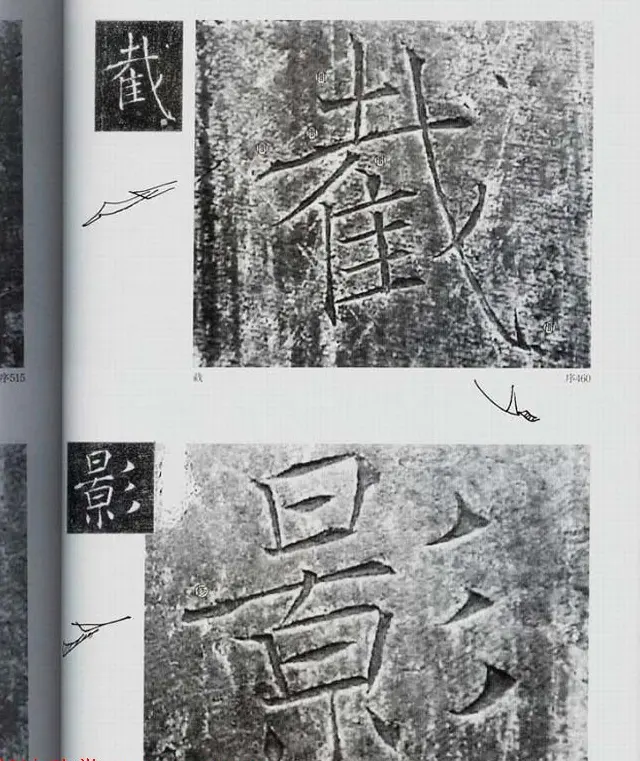 截
截
序515
截
序460
影
影